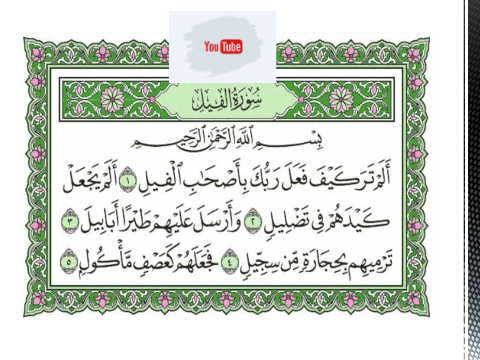 YouTube
سُورَةُ الفِيلِ
بِسْمِ اللَّهِ الرَّحْمَٰنِ الرَّحِيمِ
أَلَمْ تَرَ كَيْفَ فَعَلَ رَبُّكَ بِأَصْحَٰبِ الْفِيلِ ١ أَلَمْ يَجْعَلْ
كَيْدَهُمْ فِي تَضْلِيلٍ ٢ وَأَرْسَلَ عَلَيْهِمْ طَيْرًا أَبَابِيلَ ٣
تَرْمِيهِم بِحِجَارَةٍ مِّن سِجِّيلٍ ٤ فَجَعَلَهُمْ كَعَصْفٍ مَّأْكُولٍ ٥